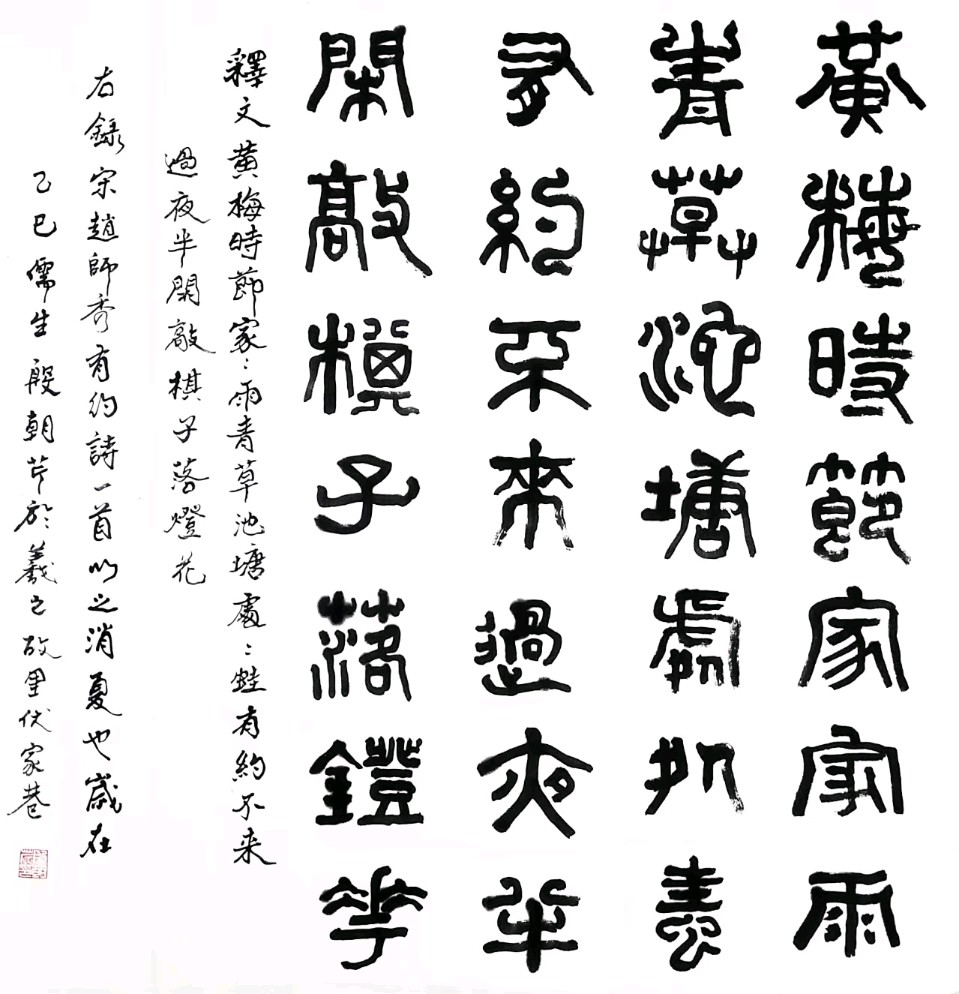 黃梅時節家家雨
青草池塘處処蛙
有約不來過夜半
閑敲棋子落鐙華
釋文黃梅時節家〻雨青草池塘處〻蛙有約不来
過夜半閑敲棋子落燈花
右錄宋趙師秀有約詩一首以之消夏也歲在
乙巳儒生殷朝芹於羲之故里伏家巷